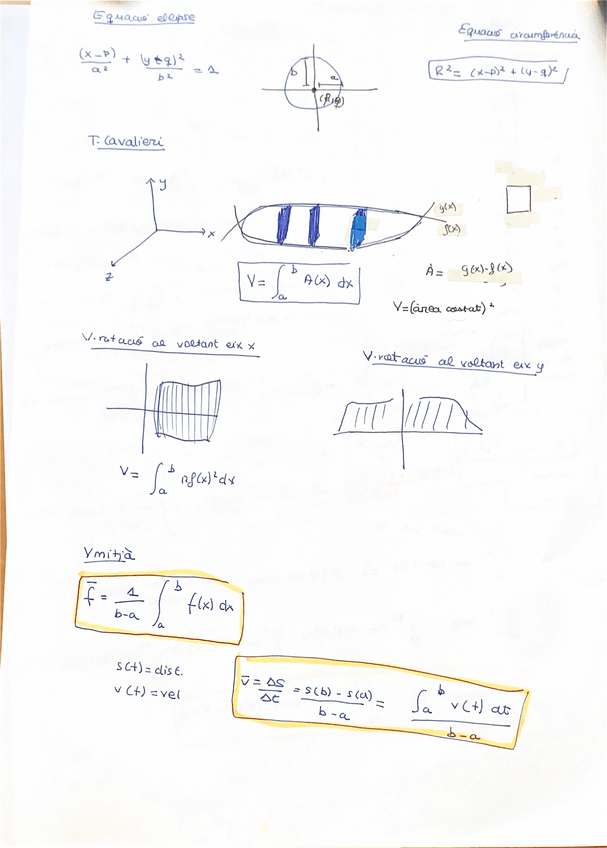 Equació elipse
Equació circumferència
(x-p)/a² + (y-q)²/b² = 1
b
a
(p,q)
R² = (x-p)² + (y-q)²
T. Cavalieri
y
x
z
g(x)
f(x)
V = ∫_a^b A(x) dx
À = g(x)-f(x)
V=(àrea costat)²
V.rotació al voltant eix x
V.rotació al voltant eix y
V = ∫_a^b πf(x)² dx
V mitjà
f̄ = 1/(b-a) ∫_a^b f(x) dx
s(t) = dist.
v(t) = vel
v̄ = Δs/Δt = (s(b) - s(a))/(b-a) = (∫_a^b v(t) dt)/(b-a)